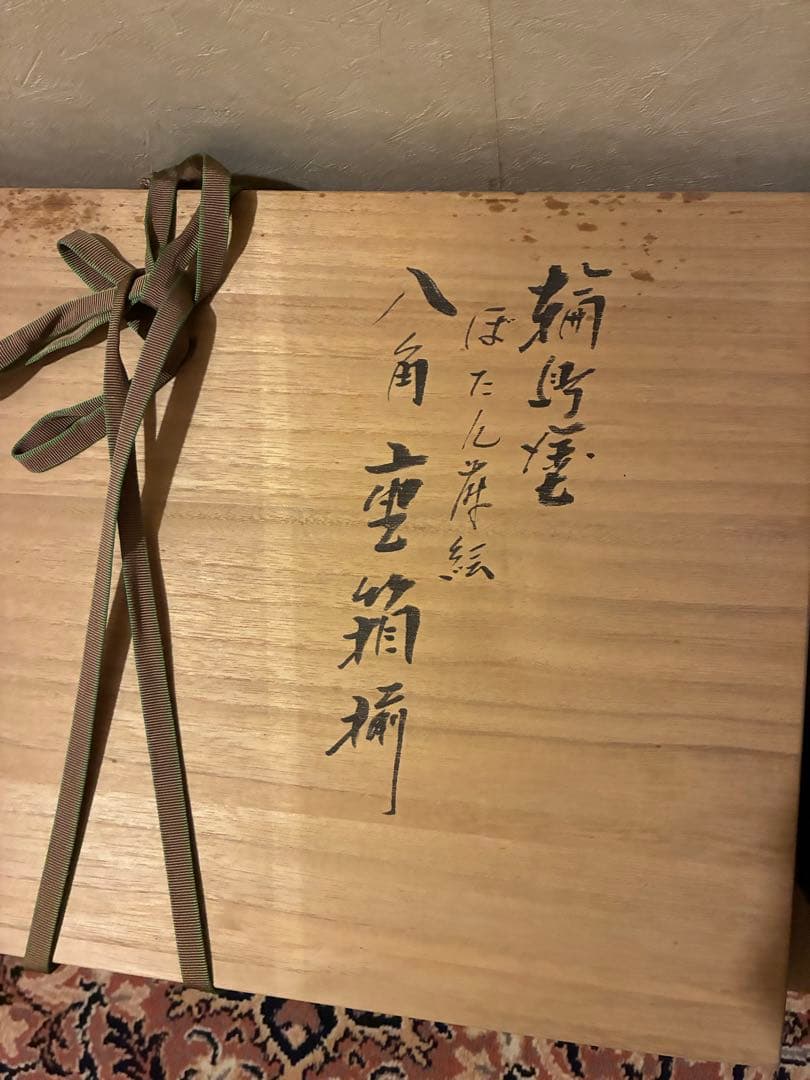 輪島塗
ぼたん蒔絵
八角重箱揃